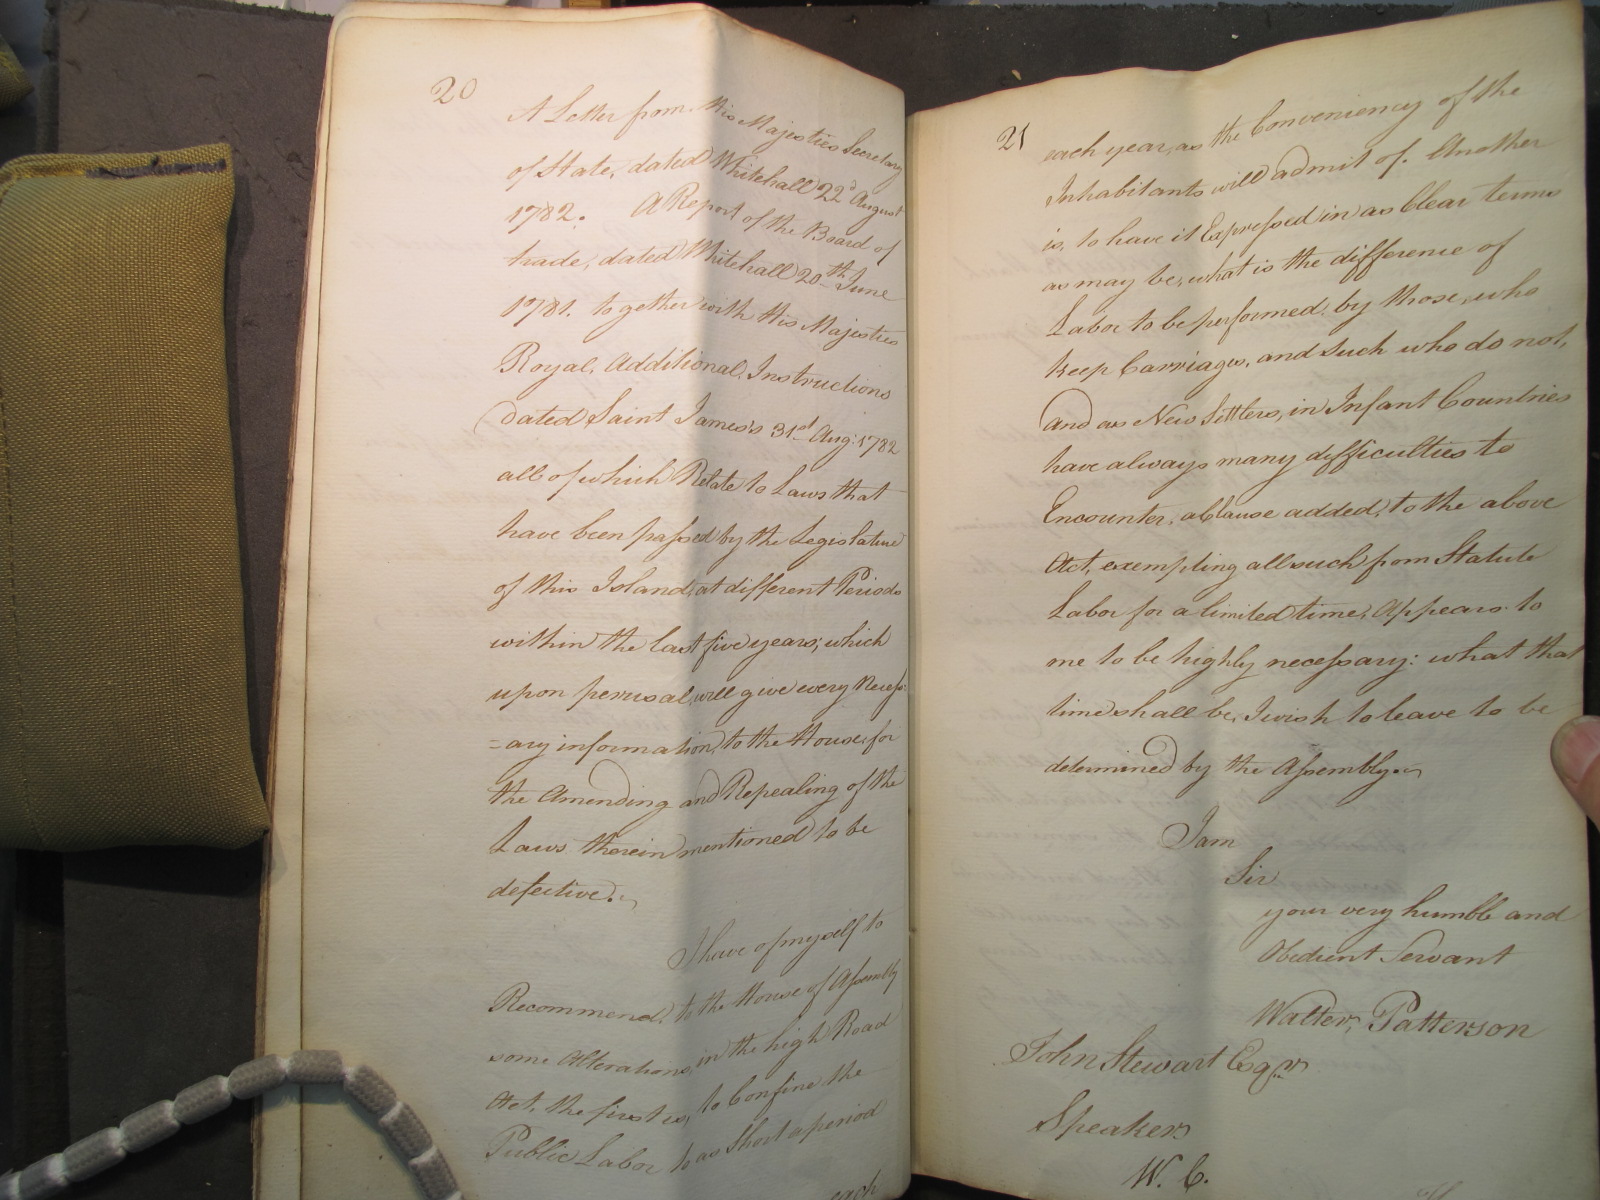 20
A Letter from His Majesties Secretary
of State, dated Whitehall 22d August
1782. A Report of the Board of
trade, dated Whitehall 20th June
1781. together with His Majesties
Royal, Additional, Instructions
dated Saint James's 31st Aug: 1782
all of which Relate to Laws that
have been passed by the Legislature
of this Island, at different Periods
within the last five years; which
upon perusal, will give every Necess:
=ary information, to the House, for
the Amending and Repealing of the
Laws therein mentioned to be
defective.
I have of myself to
Recommend, to the House of Assembly
some Alterations, in the high Road
Act, the first is, to Confine the
Public Labor to as Short a period
each
21
each year, as the Conveniency of the
Inhabitants will admit of. Another
is, to have it Expressed in as Clear terms
as may be, what is the difference of
Labor to be performed, by those, who
keep Carriages, and such who do not,
and as New Settlers, in Infant Countries
have always many difficulties to
Encounter, a Clause added, to the above
Act, exempting all such from Statute
Labor for a limited time, Appears to
me to be highly necessary: what that
time shall be, I wish to leave to be
determined by the Assembly.
I am
Sir
your very humble and
Obedient Servant
Walter, Patterson
John Stewart Esqr.
Speaker
W. C.